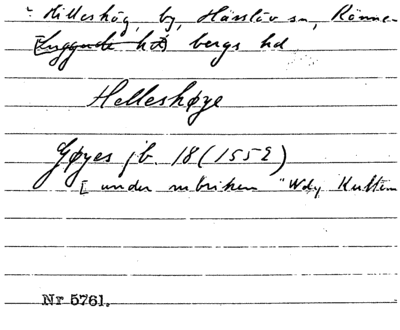 Hilleshög, by, Hässlöv sn, Rönne-
[Luggude hd] bergs hd
Helleshøye
Gøyes jb. 18 (1552)
[ under rubriken "Wdy Kullem
Nr 5761.